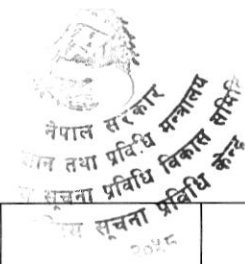 नेपाल सरकार
तथा प्रविधि मन्त्रालय
सूचना प्रविधि विकास समिति
सूचना प्रविधि केन्द्र
२०५८